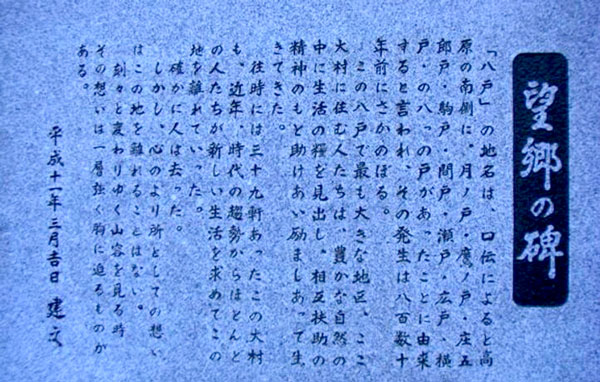 望郷の碑
「八戸」の地名は、口伝によると高
原の南側に、月ノ戸・鷹ノ戸・庄五
郎戸・駒戸・間戸・瀬戸・広戸・横
戸・の八つの戸があったことに由来
すると言われ、その発生は八百数十
年前にさかのぼる。
この八戸で最も大きな地区、ここ
大村に住む人たちは、豊かな自然の
中に生活の糧を見出し、相互扶助の
精神のもと助けあい励ましあって生
きてきた。
往時には三十九軒あったこの大村
も、近年、時代の趨勢からほとんど
の人たちが新しい生活を求めてこの
地を離れていった。
確かに人は去った。
しかし、心のより所としての想い
はこの地を離れることはない。
刻々と変わりゆく山容を見る時
その想いは一層強く胸に迫るものが
ある。
平成十一年三月吉日 建之